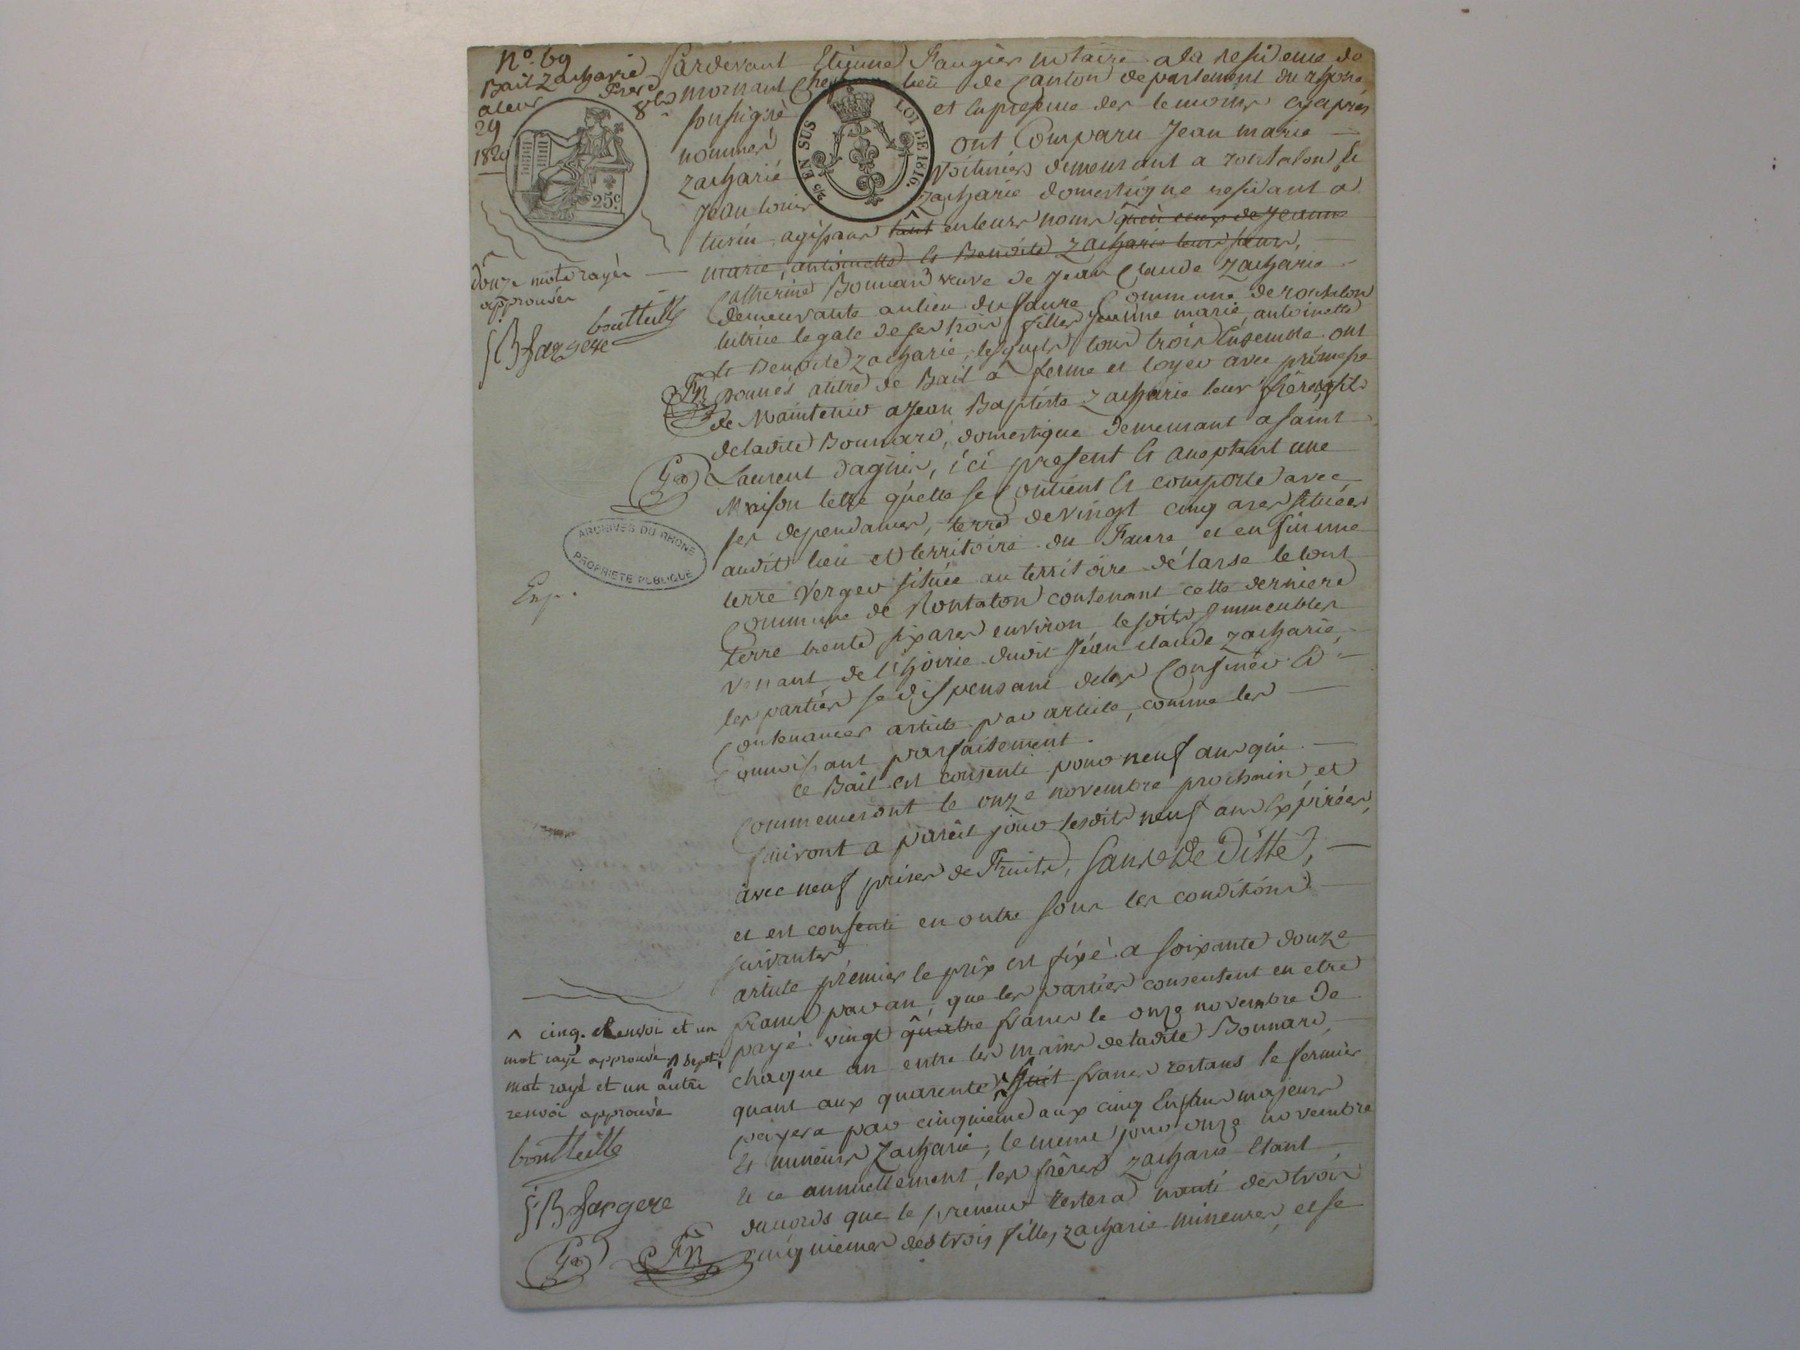 N° 69
Bail Zacharie
a leur frere
29 8bre
1820
25c
2/10 EN SUS
LOI DE 1816.
Pardevant Etienne Faugier notaire a la residence de
mornant chef lieu de Canton departement du rhone
soussigné et en presence des temoins cy après
nommés ont Comparu Jean marie
zacharie voiturier demeurant a rontalon et
Jean Louis zacharie domestique residant a
turin agissant tant en leurs noms qu'en ceux de Jeanne
marie, antoinette et Benoite Zacharie leurs sœurs,
Catherine Bonnard veuve de Jean Claude Zacharie
demeurante au lieu du faure Commune de rontalon
tutrice legale de ses trois filles Jeanne marie, antoinette
et Benoite zacharie, lesquels tous trois Ensemble ont
donnés a titre de Bail a ferme et loyer avec promesse
de Maintenir a Jean Baptiste Zacharie leur frère, fils
de ladite Bonnard, domestique demeurant a saint
Laurent d'agnin, ici present et acceptant une
Maison telle qu'elle se Contient et comporte avec
ses dependances, terre de vingt cinq ares situées
audit lieu et territoire du Faure et en fin une
terre verger située au territoire de larse le tout
Commune de Rontalon contenant cette derniere
terre trente six ares environ lesdits Immeubles
venant de l'hoirie dudit Jean claude zacharie,
les parties se dispensant de les Confiner et
Contenances article par article, comme les
Connoissant parfaitement.
ce Bail est consenti pour neuf ans qui
Commenceront le onze novembre prochain et
finiront a pareil jour lesdits neuf ans Expirées,
avec neuf prises de Fruits, sans de Ditte,
et est consenti en outre sous les conditions
suivantes
article premier le prix est fixé a soixante douze
francs par an, que les parties consentent en etre
payé vingt quatre francs le onze novembre de
chaque an entre les mains de ladite Bonnard,
quant aux quarente huit francs restans le fermier
payera par cinquieme aux cinq Enfans majeurs
et mineurs Zacharie, le meme jour onze novembre
et ce annuellement, les frères zacharie étant
d'accords que le preneur restera nanti des trois
cinquiemes des trois filles zacharie mineures, et se
douze mots rayés
approuvés
boutteille
JB fargere
FR
ARCHIVES DU RHONE
PROPRIETE PUBLIQUE
Enr.
^ cinq. renvoi et un
mot rayé approuvés ^ sept,
mot rayé et un autre
renvoi approuvés
boutteille
JB fargere
FR